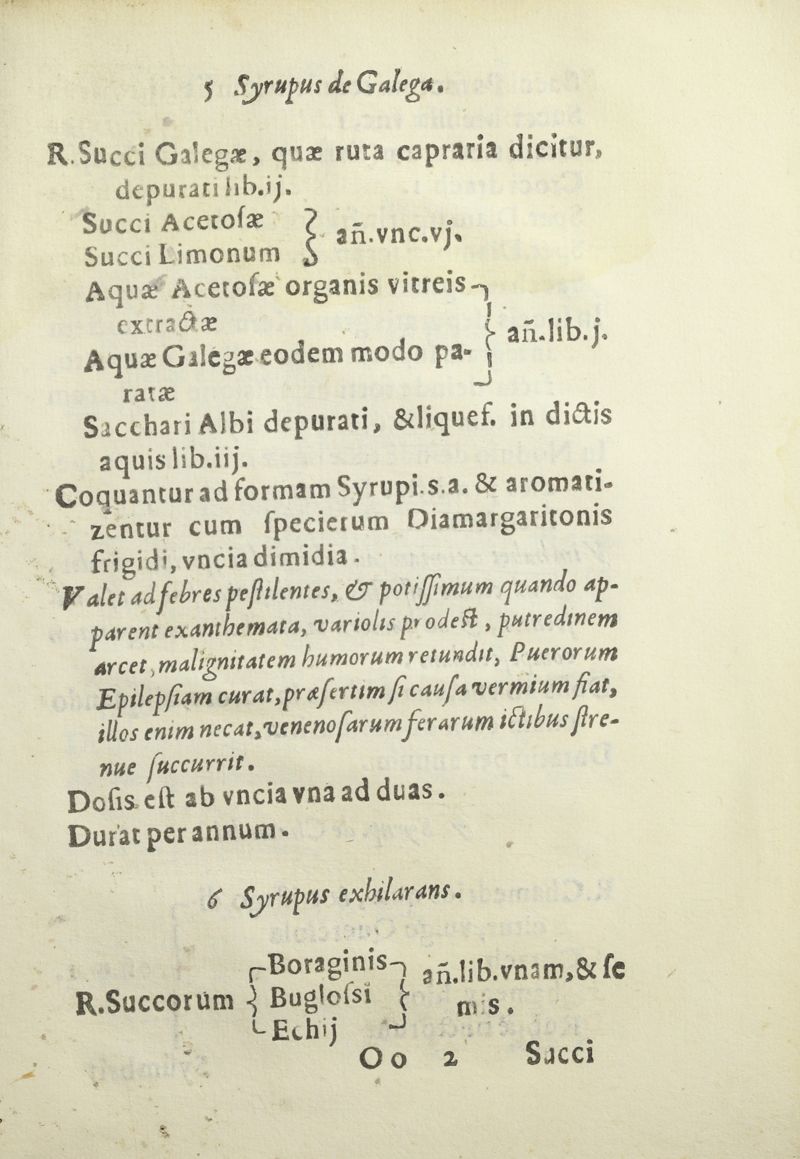 5 Syrupus de Galega.
R. Succi Galegæ, quæ ruta capraria dicitur,
depurati lib.ij.
Succi Acetoſæ
Succi Limonum } añ.vnc.vj.
Aquæ Acetoſæ organis vitreis
extractæ
Aquæ Galegæ eodem modo pa- } añ.lib.j.
ratæ
Sacchari Albi depurati, &liquef. in dictis
aquis lib.iij.
Coquantur ad formam Syrupi.s.a. & aromati-
zentur cum ſpecierum Diamargaritonis
frigidi, vncia dimidia.
Valet ad febres peſtilentes, & potiſſimum quando ap-
parent exanthemata, variolis prodeſt, putredinem
arcet, malignitatem humorum retundit, Puerorum
Epilepſiam curat, præſertim ſi cauſa vermium fiat,
illos enim necat, venenoſarum ferarum ictibus ſtre-
nue ſuccurrit.
Doſis eſt ab vncia vna ad duas.
Durat per annum.
6 Syrupus exhilarans.
Boraginis añ.lib.vnam,& ſe
R.Succorum { Bugloſsi } mis.
Echij
Oo 2 Succi